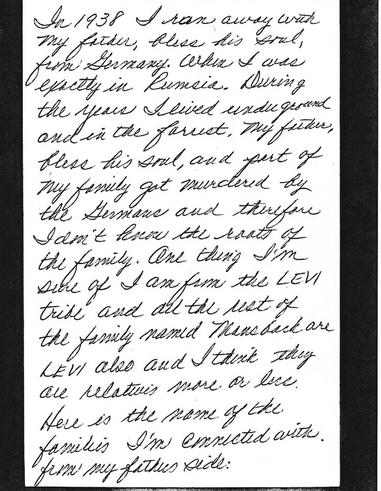 In 1938 I ran away with
my father, bless his soul,
from Germany. When I was
exactly in Rumsia. During
the years I lived undeground
and in the forrest. My father,
bless his soul, and part of
my family got murdered by
the Germans and therefore
I don't know the roots of
the family. One thing I'm
sure of I am from the LEVI
tribe and all the rest of
the family named Mansback are
LEVI also and I think they
are relativis more or less.
Here is the name of the
families I'm connected with.
from my fathers side: